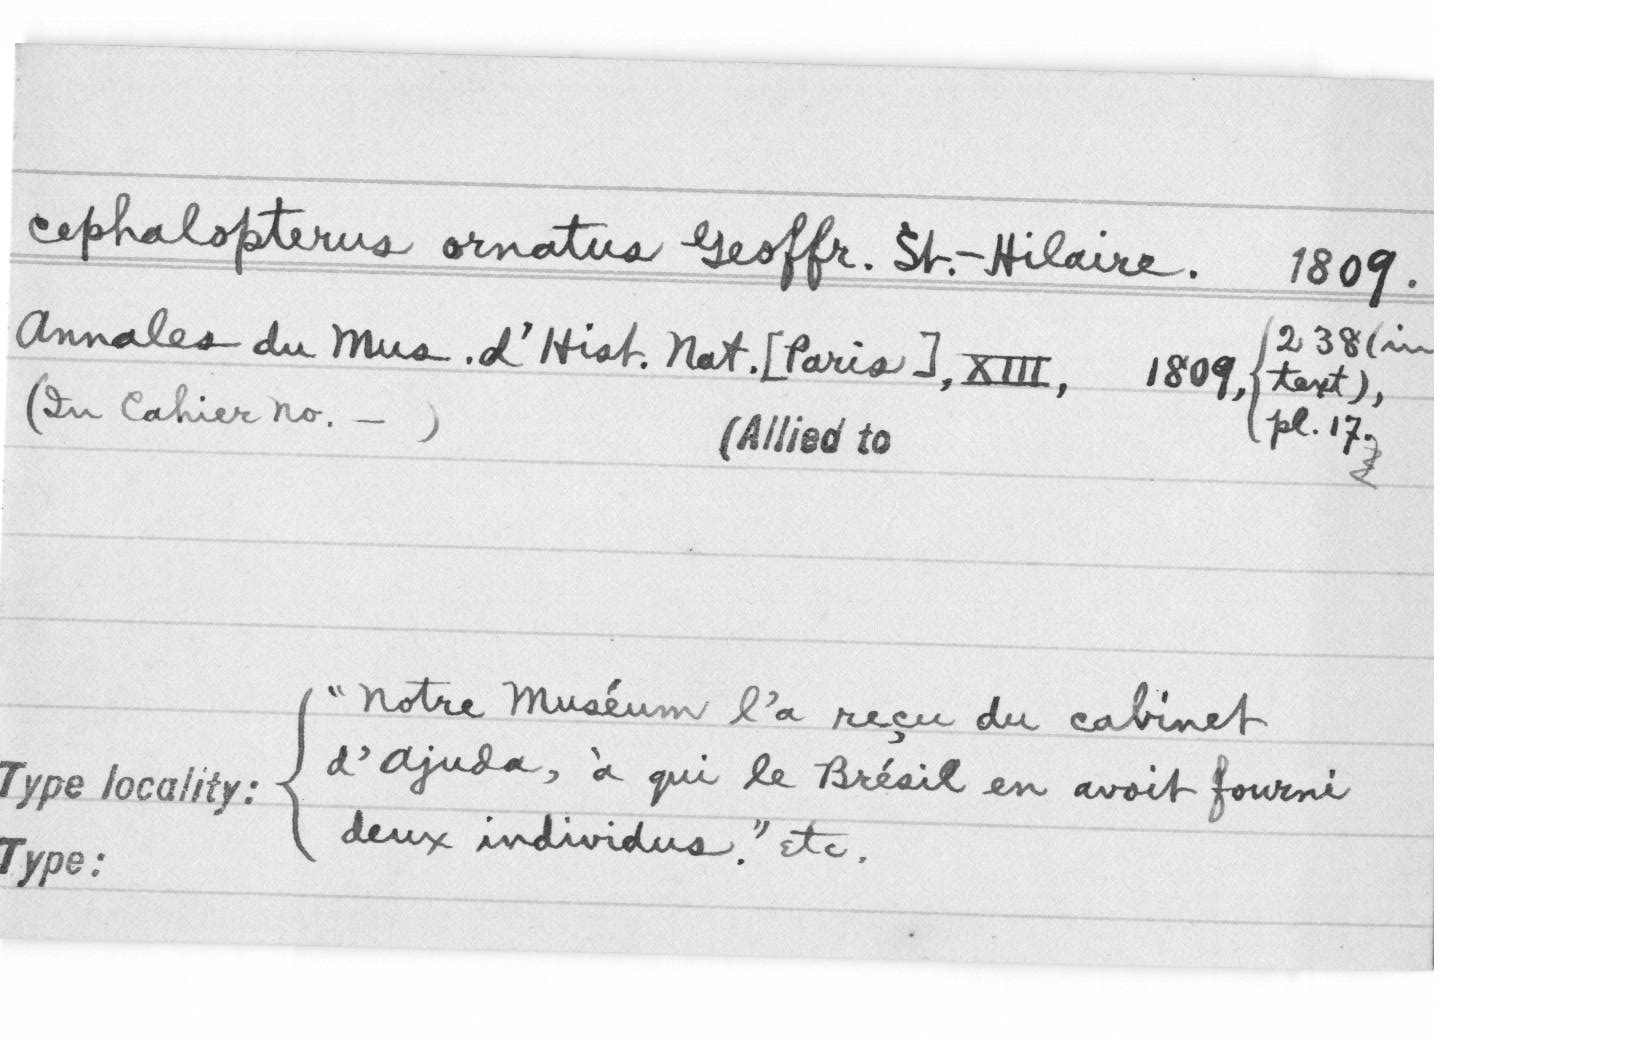 Cephalopterus ornatus Geoffr. St.-Hilaire. 1809.
Annales du Mus. d'Hist. Nat. [Paris], XIII, 1809, { 238 (in text), pl. 17.
(In Cahier no. — )
(Allied to
Type locality: { "Notre Muséum l'a reçu du cabinet
d'Ajuda, à qui le Brésil en avoit fourni
deux individus." etc.
Type: